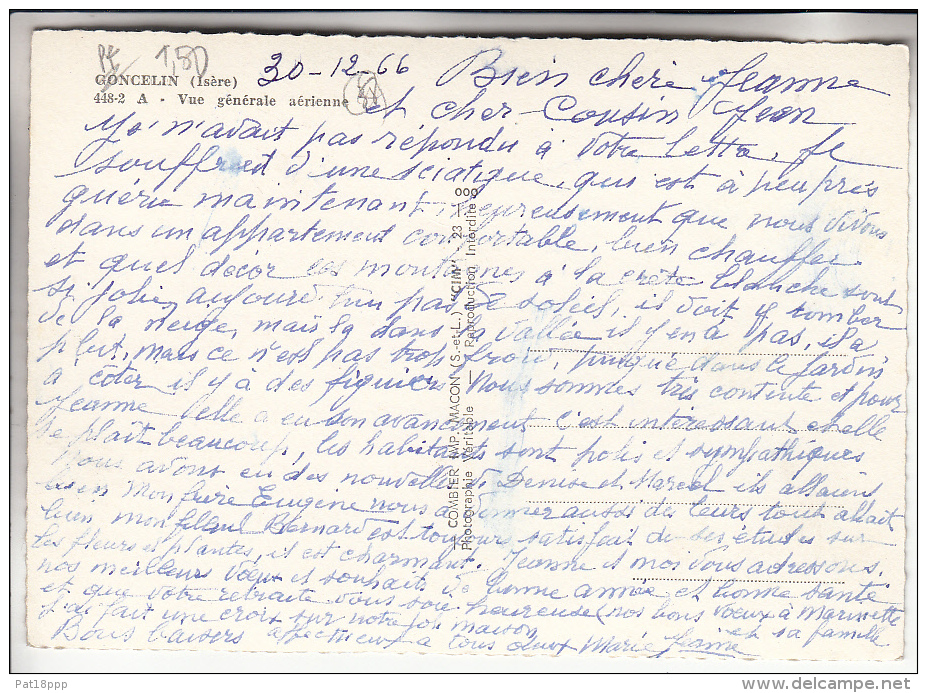 PE 1,50
GONCELIN (Isère)
448-2 A - Vue générale aérienne
30-12-66
Bien chère Jeanne
et cher Cousin Jean
Je n'avait pas répondu à Votre Lettre, Je
souffrait d'une sciatique, qui est à peu près
guérie maintenant heureusement que nous vivons
dans un appartement confortable, bien chauffer
et quel décor ces montagnes à la crête blanche sont
si jolie, aujourd'hui pas de soleil, il doit y tomber
de la neige, mais là dans la Vallée il y en a pas, il a
plut, mais ce n'est pas trop froid, puisque dans le jardin
a côter il y a des figuiers Nous sommes très contente et pour
Jeanne elle a eu son avancement c'est intéressant et elle
se plait beaucoup, les habitants sont polis et sympathiques
Nous avons eu des nouvelles de Denise et Marcel ils allaient
bien Mon frère Eugène nous a donner aussi des leurs tout allait
bien mon filleul Bernard est toujours satisfait de ses études sur
les fleurs et plantes, il est charmant. Jeanne et moi Vous adressons,
nos meilleurs Vœux et souhaits de bonne année et bonne santé
et que votre retraite vous soie heureuse (nos bons Vœux à Marinette
et sa famille
j'ai fait une croix sur notre joli maison
Bons baisers affectueux a tous deux Marie Jeanne
COMBIER IMP. MACON (S.-et-L.) "CIM" 23
Photographie Véritable — Reproduction Interdite
Pat18ppp
www.delcampe.net